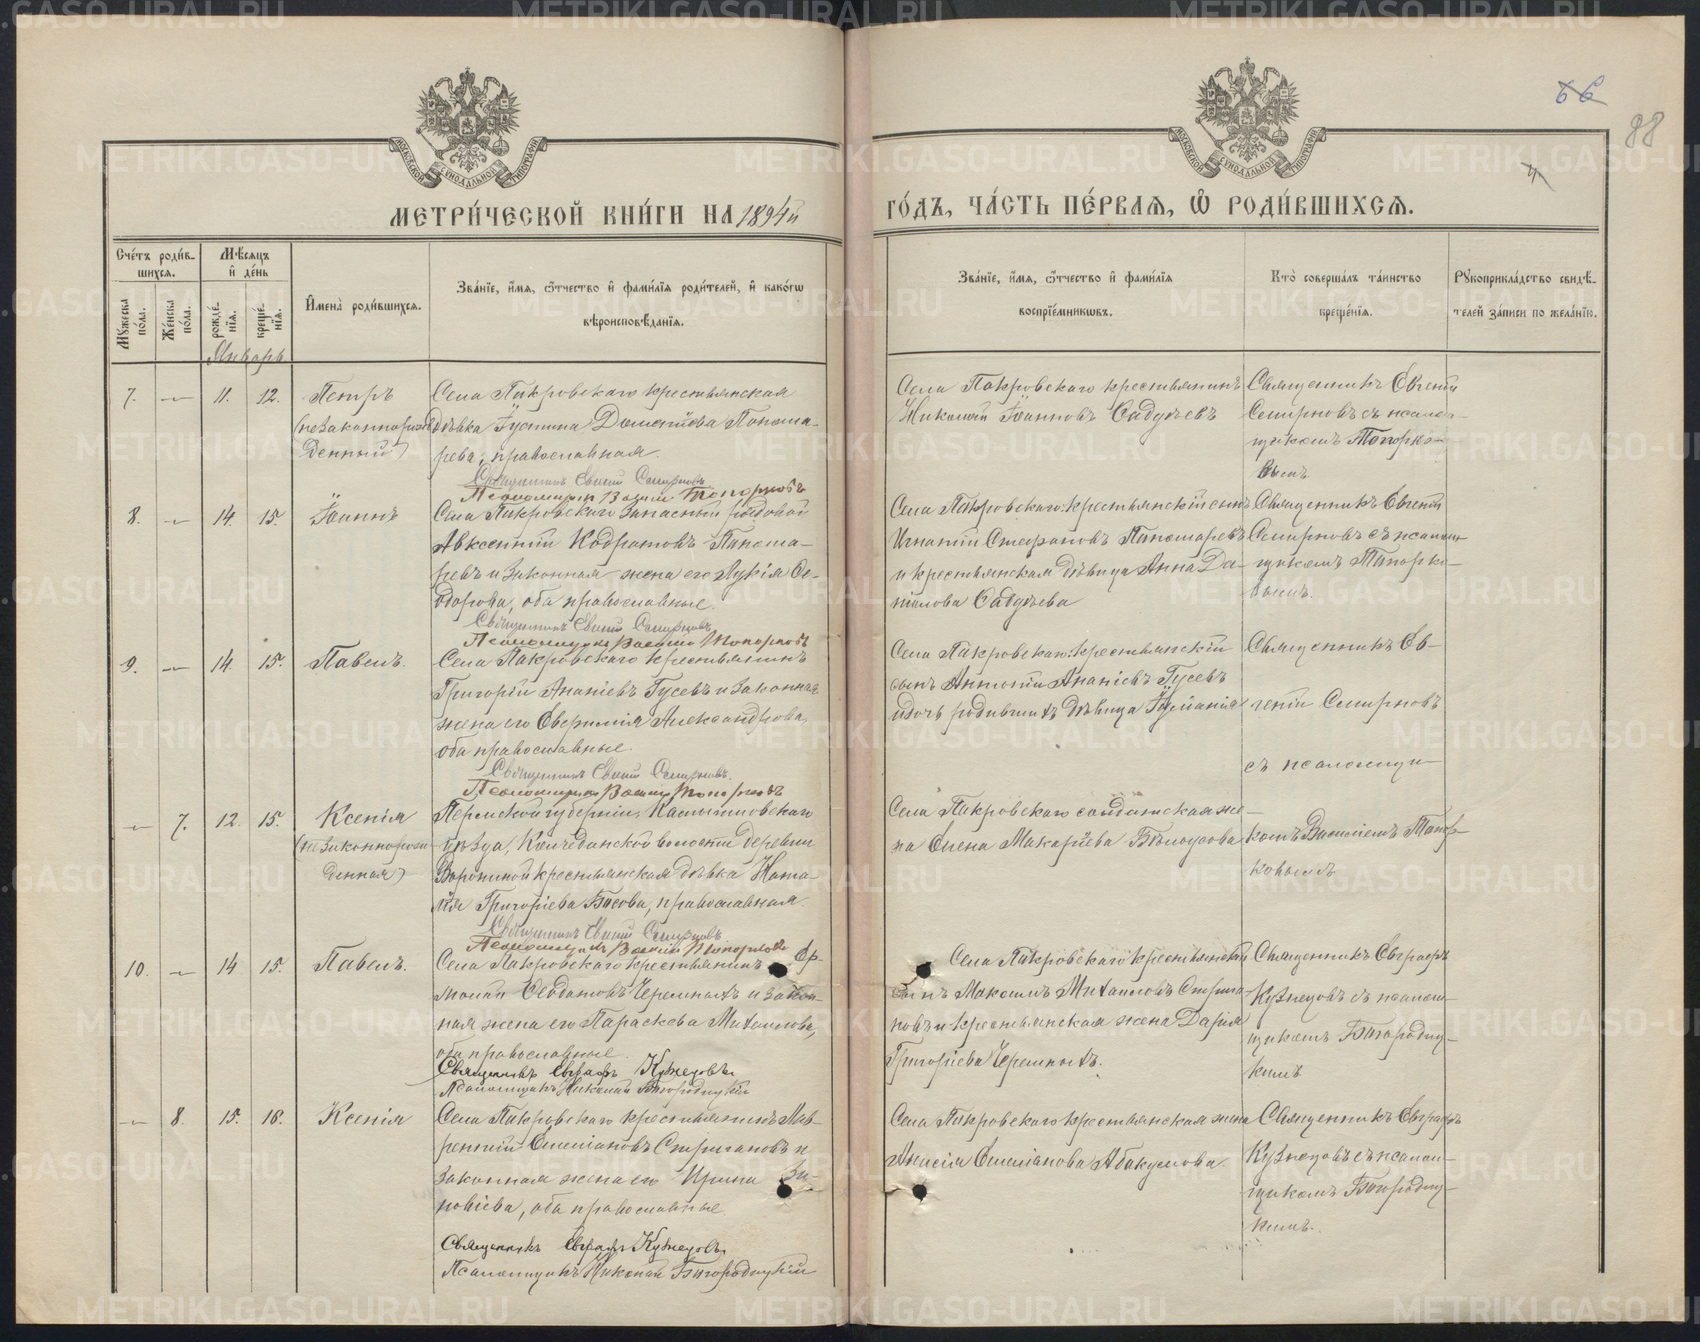 МЕТРИ́ЧЕСКОЙ КНИ́ГИ НА 1894й
ГО́ДЪ, ЧА́СТЬ ПЕ́РВАЯ, Ѡ РОДИ́ВШИХСЯ.
66
88
4
Сче́тъ роди́в-
шихся.
Мѣ́сяцъ
и де́нь
Имена̀ роди́вшихся.
Зва́нїе, и́мя, ѻ́тчество и фами́лїя роди́телей, и како́гѡ
вѣроисповѣ́данїя.
Зва́нїе, и́мя, ѻ́тчество и фами́лїя
воспрїе́мникѡвъ.
Кто̀ соверша́лъ та́инство
креще́нїя.
Рꙋкоприкла́дство свидѣ́-
телей за́писи по жела́нїю.
Мꙋ́жеска
по́ла.
Же́нска
по́ла.
рожде́-
нїя.
креще́-
нїя.
Январь
7. — 11. 12. Петръ
(незаконнорож-
денный)
Села Покровскаго крестьянская
дѣвка Іустина Дометіева Понома-
рева, православная.
Священникъ Евгеній Смирновъ
Псаломщикъ Василій Топорковъ
Села Покровскаго крестьянинъ
Николай Іоанновъ Садуевъ
Священникъ Евгеній
Смирновъ съ псалом-
щикомъ Топорко-
вымъ
8. — 14. 15. Іоаннъ
Села Покровскаго запасный рядовой
Авксентій Кодратовъ Понома-
ревъ и законная жена его Лукія Ѳе-
одорова, оба православные.
Священникъ Евгеній Смирновъ
Псаломщикъ Василій Топорковъ
Села Покровскаго крестьянскій сынъ
Игнатій Стефановъ Пономаревъ
и крестьянская дѣвица Анна Да-
ніилова Садуева
Священникъ Евгеній
Смирновъ съ псалом-
щикомъ Топорко-
вымъ.
9. — 14. 15. Павелъ.
Села Покровскаго крестьянинъ
Григорій Ананіевъ Гусевъ и законная
жена его Евфимія Александрова,
оба православные.
Священникъ Евгеній Смирновъ.
Псаломщикъ Василій Топорковъ
Села Покровскаго крестьянскій
сынъ Антоній Ананіевъ Гусевъ
и дочь родившихъ дѣвица Іуліанія
Священникъ Ев-
геній Смирновъ
съ псаломщи-
— 7. 12. 15. Ксенія
(незаконнорож-
денная)
Пермской губерніи, Камышловскаго
уѣзда, Колчеданской волости деревни
Ворониной крестьянская дѣвка Ната-
лія Григоріева Басова, православная.
Священникъ Евгеній Смирновъ
Псаломщикъ Василій Топорковъ
Села Покровскаго солдатская же-
на Елена Макаріева Бѣлоусова
комъ Василіемъ Топор-
ковымъ
10. — 14 15. Павелъ.
Села Покровскаго крестьянинъ Ер-
молай Ѳеодотовъ Черемныхъ и закон-
ная жена его Параскева Михаилова,
оба православные.
Священникъ Евграфъ Кузнецовъ
Псаломщикъ Николай Богородицкій
Села Покровскаго крестьянскій
сынъ Максимъ Михаиловъ Стрига-
новъ и крестьянская жена Дарія
Григоріева Черемныхъ.
Священникъ Евграфъ
Кузнецовъ съ псалом-
щикомъ Богородиц-
кимъ
— 8. 15. 16. Ксенія
Села Покровскаго крестьянинъ Лав-
рентій Емеліановъ Стригановъ и
законная жена его Ирина Зи-
новіева, оба православные.
Священникъ Евграфъ Кузнецовъ
Псаломщикъ Николай Богородицкій
Села Покровскаго крестьянская жена
Анисія Емеліанова Абакумова.
Священникъ Евграфъ
Кузнецовъ съ псалом-
щикомъ Богородиц-
кимъ.
METRIKI.GASO-URAL.RU